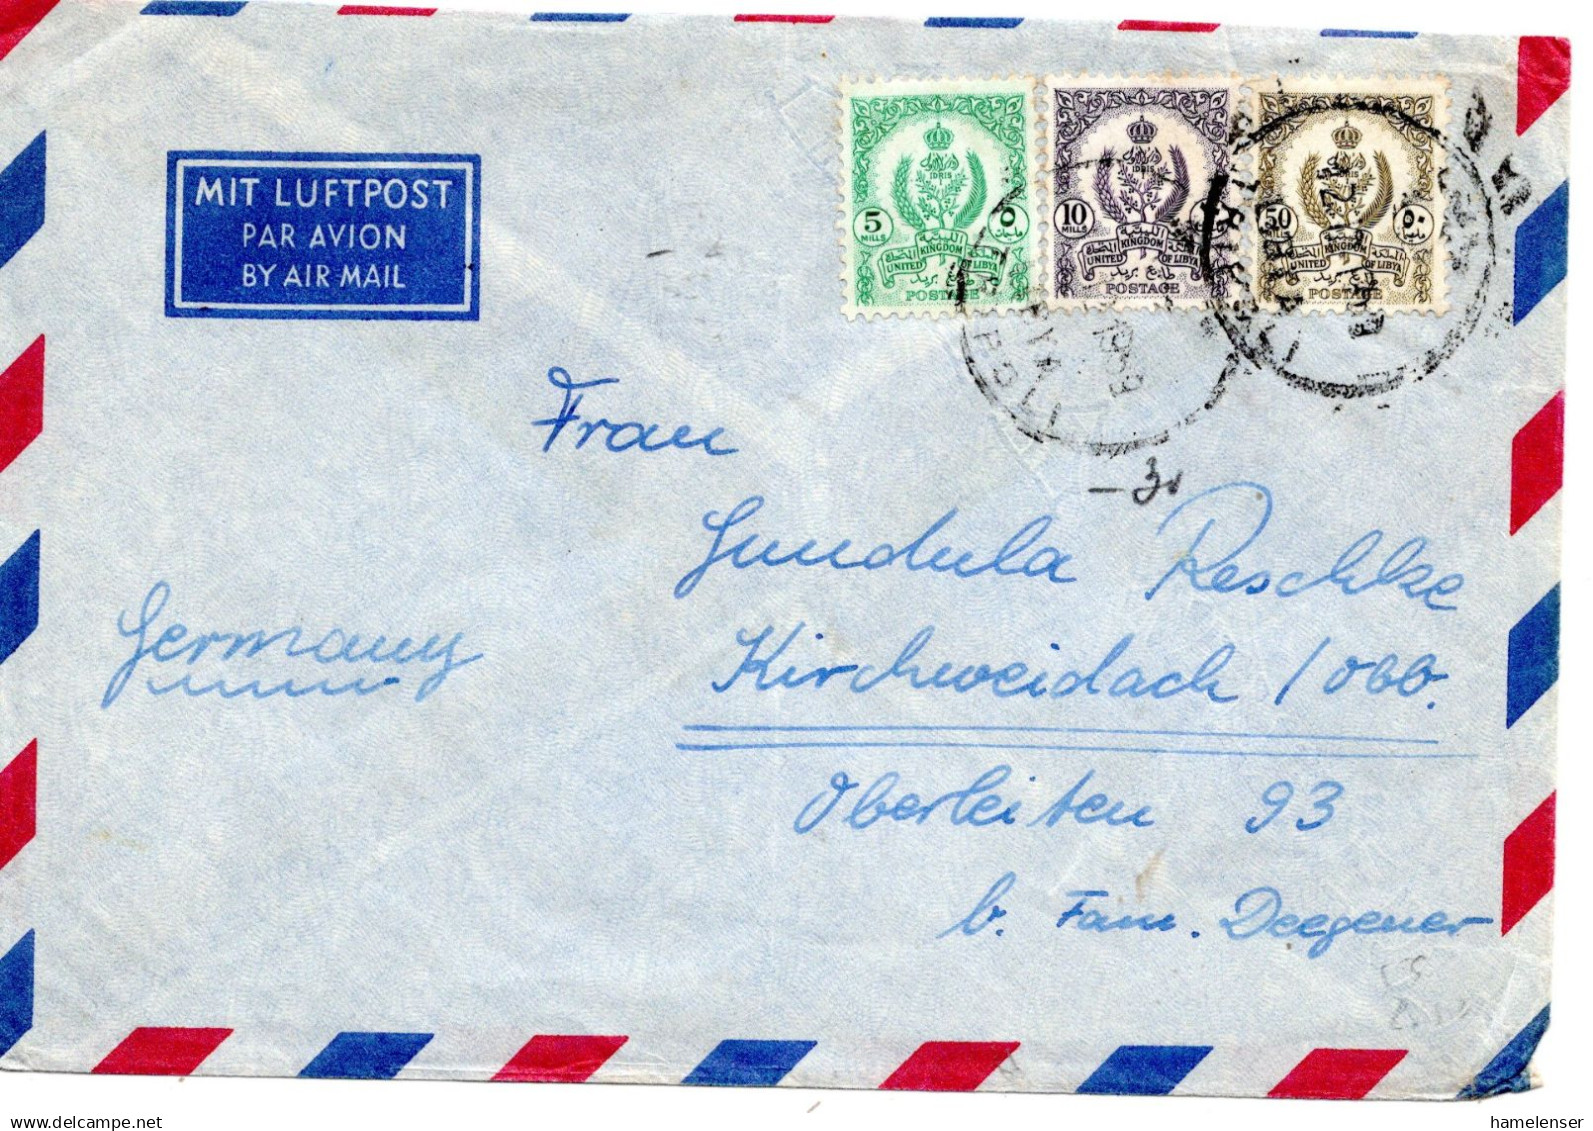 MIT LUFTPOST
PAR AVION
BY AIR MAIL
IDRIS
5
MILLS
٥
UNITED KINGDOM OF LIBYA
POSTAGE
IDRIS
10
MILLS
UNITED KINGDOM OF LIBYA
POSTAGE
50
MILLS
٥٠
UNITED KINGDOM OF LIBYA
POSTAGE
1959
Frau
Gundula Reschke
Germany
Kirchweidach / Obb.
Oberleiten 93
b. Fam. Deegener
hamelenser